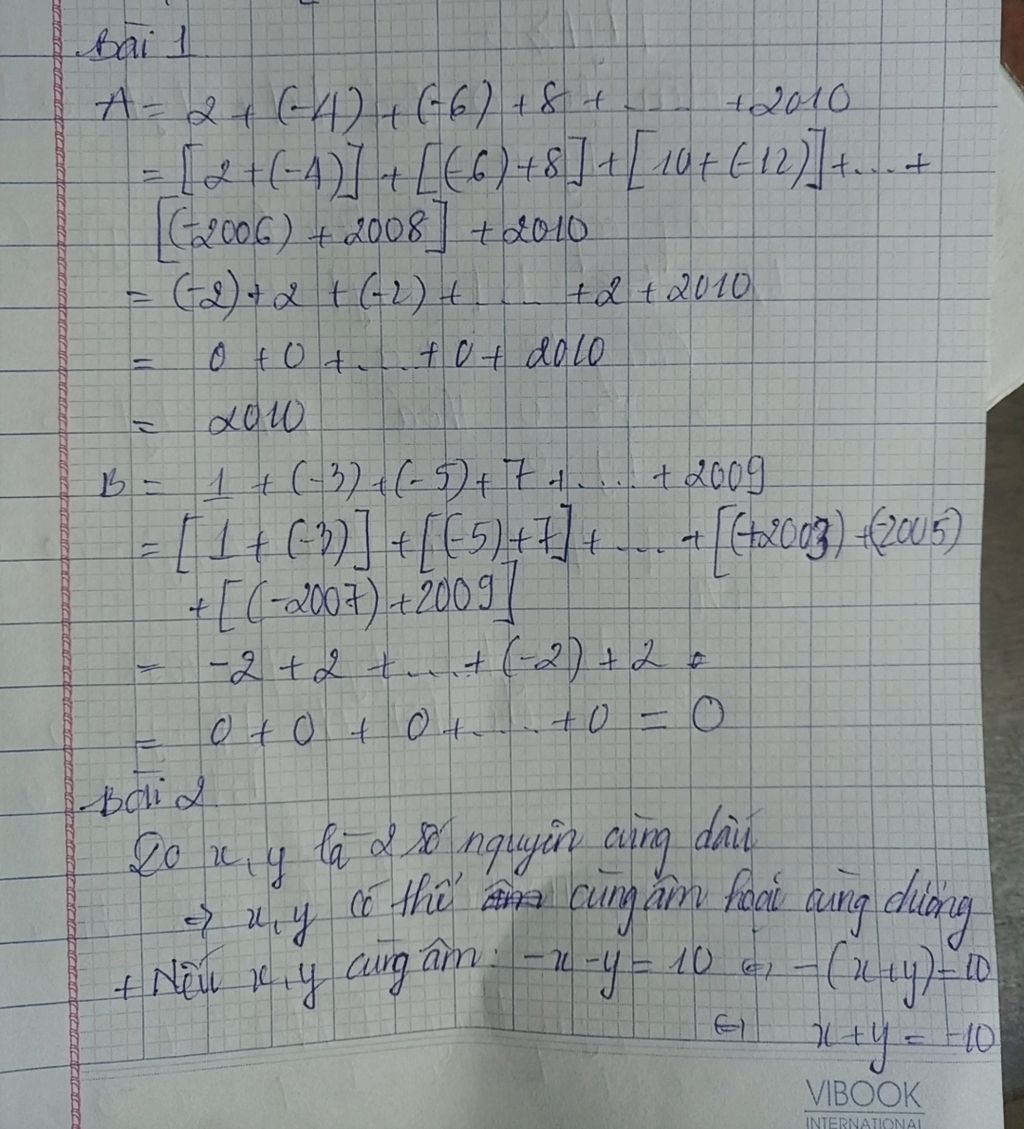 Bài 1
A = 2 + (-4) + (-6) + 8 + ..... + 2010
= [2 + (-4)] + [(-6) + 8] + [10 + (-12)] + .... +
[(-2006) + 2008] + 2010
= (-2) + 2 + (-2) + ..... + 2 + 2010
= 0 + 0 + ..... + 0 + 2010
= 2010
B = 1 + (-3) + (-5) + 7 + ..... + 2009
= [1 + (-3)] + [(-5) + 7] + ..... + [(+2003) + (-2005)
+ [(-2007) + 2009]
= -2 + 2 + ..... + (-2) + 2
= 0 + 0 + 0 + ..... + 0 = 0
Bài 2
Do x, y là 2 số nguyên cùng dấu
⇒ x, y có thể cùng âm hoặc cùng dương
+ Nếu x, y cùng âm: -x - y = 10 ⇔ -(x+y) = 10
⇔ x + y = -10
VIBOOK
INTERNATIONAL